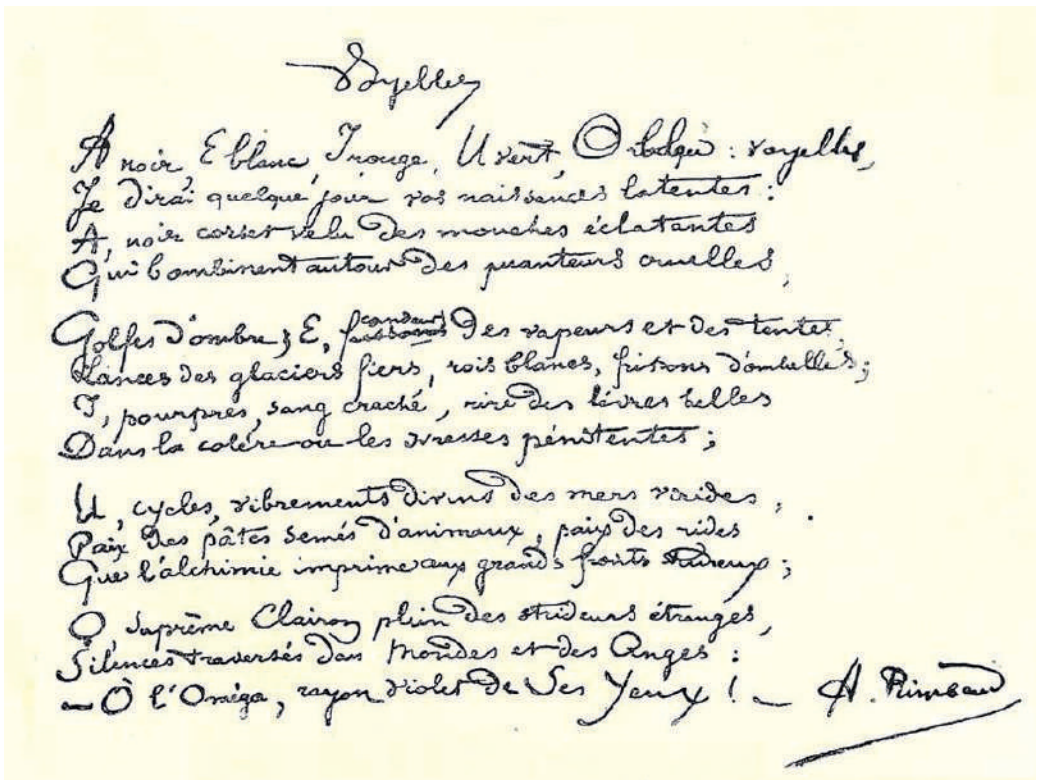 Voyelles
A noir, E blanc, I rouge, U vert, O bleu : voyelles,
Je dirai quelque jour vos naissances latentes :
A, noir corset velu des mouches éclatantes
Qui bombinent autour des puanteurs cruelles,
Golfes d'ombre ; E, candeurs des vapeurs et des tentes,
Lances des glaciers fiers, rois blancs, frissons d'ombelles ;
I, pourpres, sang craché, rire des lèvres belles
Dans la colère ou les ivresses pénitentes ;
U, cycles, vibrements divins des mers virides,
Paix des pâtis semés d'animaux, paix des rides
Que l'alchimie imprime aux grands fronts studieux ;
O, Suprême Clairon plein des strideurs étranges,
Silences traversés des Mondes et des Anges :
– Ô l'Oméga, rayon violet de Ses Yeux ! –
A. Rimbaud